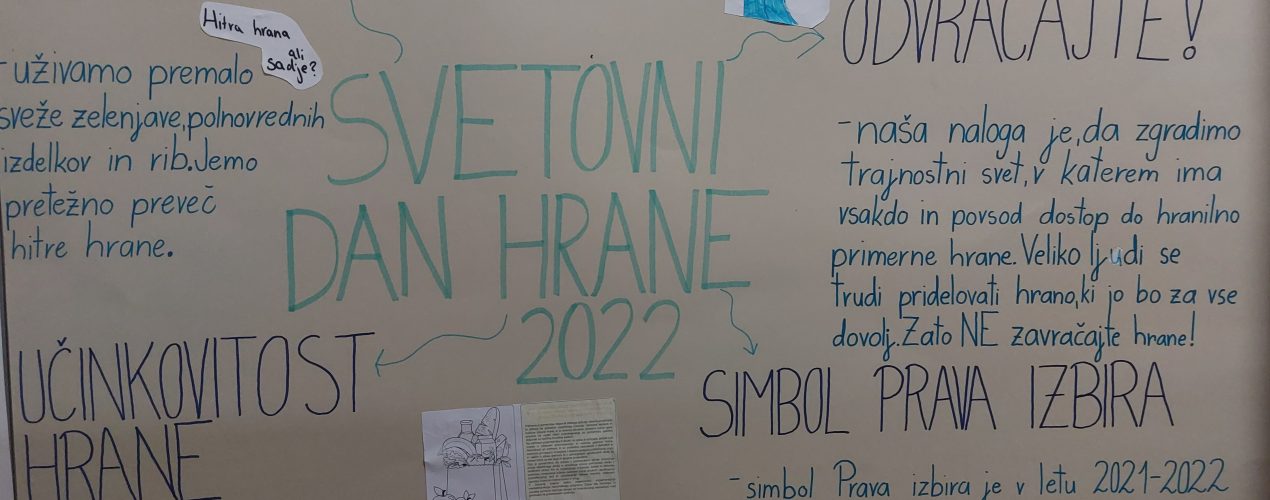 Hitra hrana
ali
sadje?
- uživamo premalo
sveže zelenjave, polnovrednih
izdelkov in rib. Jemo
pretežno preveč
hitre hrane.
SVETOVNI
DAN HRANE
2022
ODVRAČAJTE!
- naša naloga je, da zgradimo
trajnostni svet, v katerem ima
vsakdo in povsod dostop do hranilno
primerne hrane. Veliko ljudi se
trudi pridelovati hrano, ki jo bo za vse
dovolj. Zato NE zavračajte hrane!
UČINKOVITOST
HRANE
SIMBOL PRAVA IZBIRA
- simbol Prava izbira je v letu 2021-2022